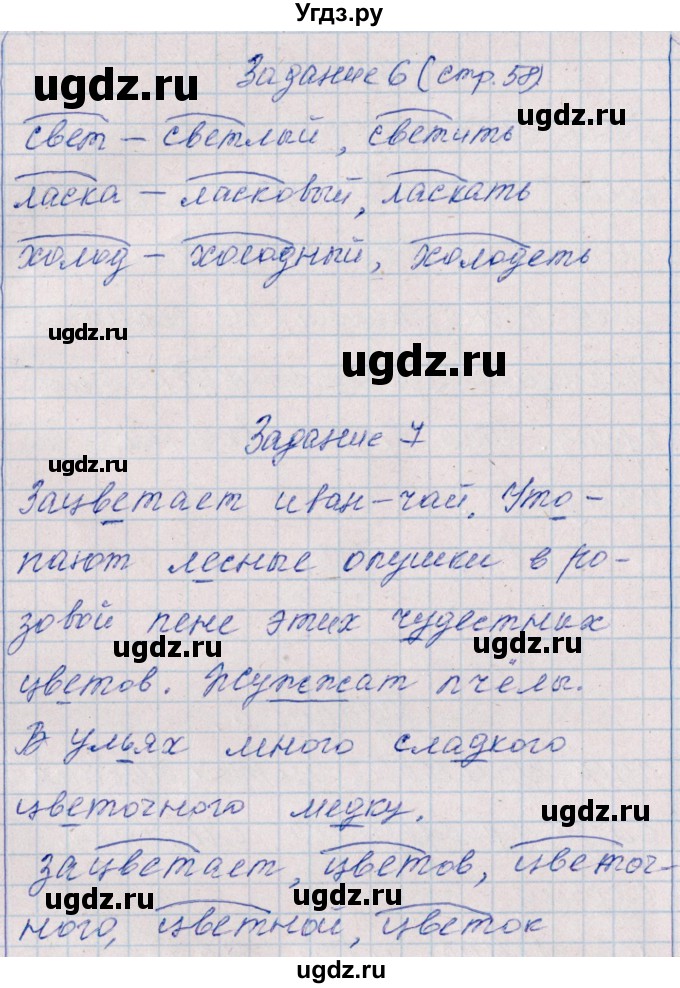 Угдз.ру
Задание 6 (стр. 58)
свет – светлый, светить
ласка – ласковый, ласкать
холод – холодный, холодеть
Задание 7
Зацветает иван-чай. Уто-
пают лесные опушки в ро-
зовой пене этих чудестных
цветов. Жужжат пчёлы.
В ульях много сладкого
цветочного медку.
зацветает, цветов, цветоч-
ного, цветной, цветок
ugdz.ru
ugdz.ru
ugdz.ru
ugdz.ru
ugdz.ru
ugdz.ru
ugdz.ru
ugdz.ru
ugdz.ru
ugdz.ru